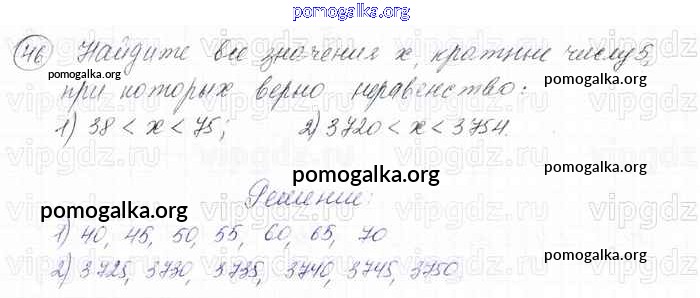 pomogalka.org
46 Найдите все значения x, кратные числу 5,
pomogalka.org pomogalka.org
при которых верно неравенство:
1) 38 < x < 75; 2) 3720 < x < 3754.
vipgdz.ru vipgdz.ru vipgdz.ru vipgdz
Решение:
pomogalka.org pomogalka.org
pomogalka.org
1) 40, 45, 50, 55, 60, 65, 70
2) 3725, 3730, 3735, 3740, 3745, 3750
pomogalka.org